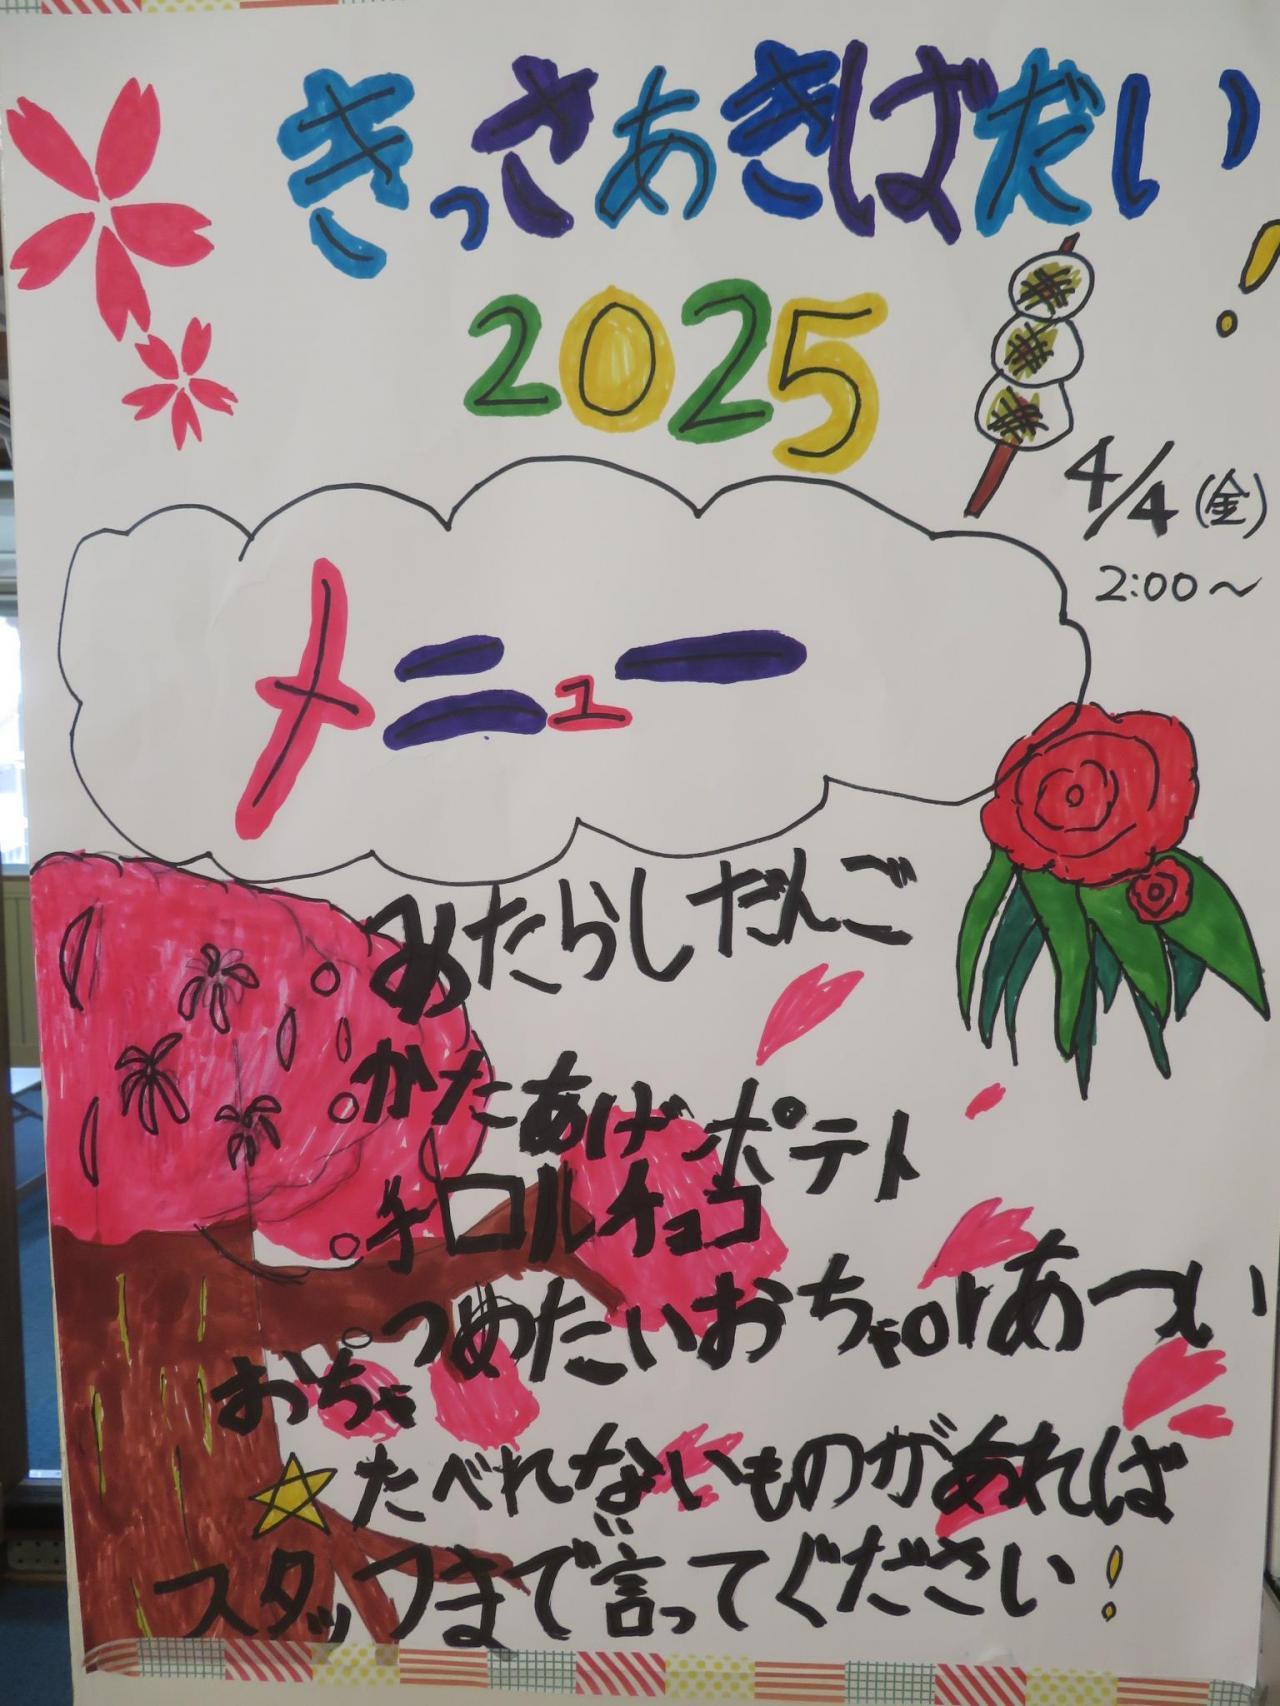 きっさあきばだい!
2025
4/4(金)
2:00〜
メニュー
みたらしだんご
かたあげポテト
チロルチョコ
つめたいおちゃorあつい
おちゃ
たべれないものがあれば
スタッフまで言ってください!